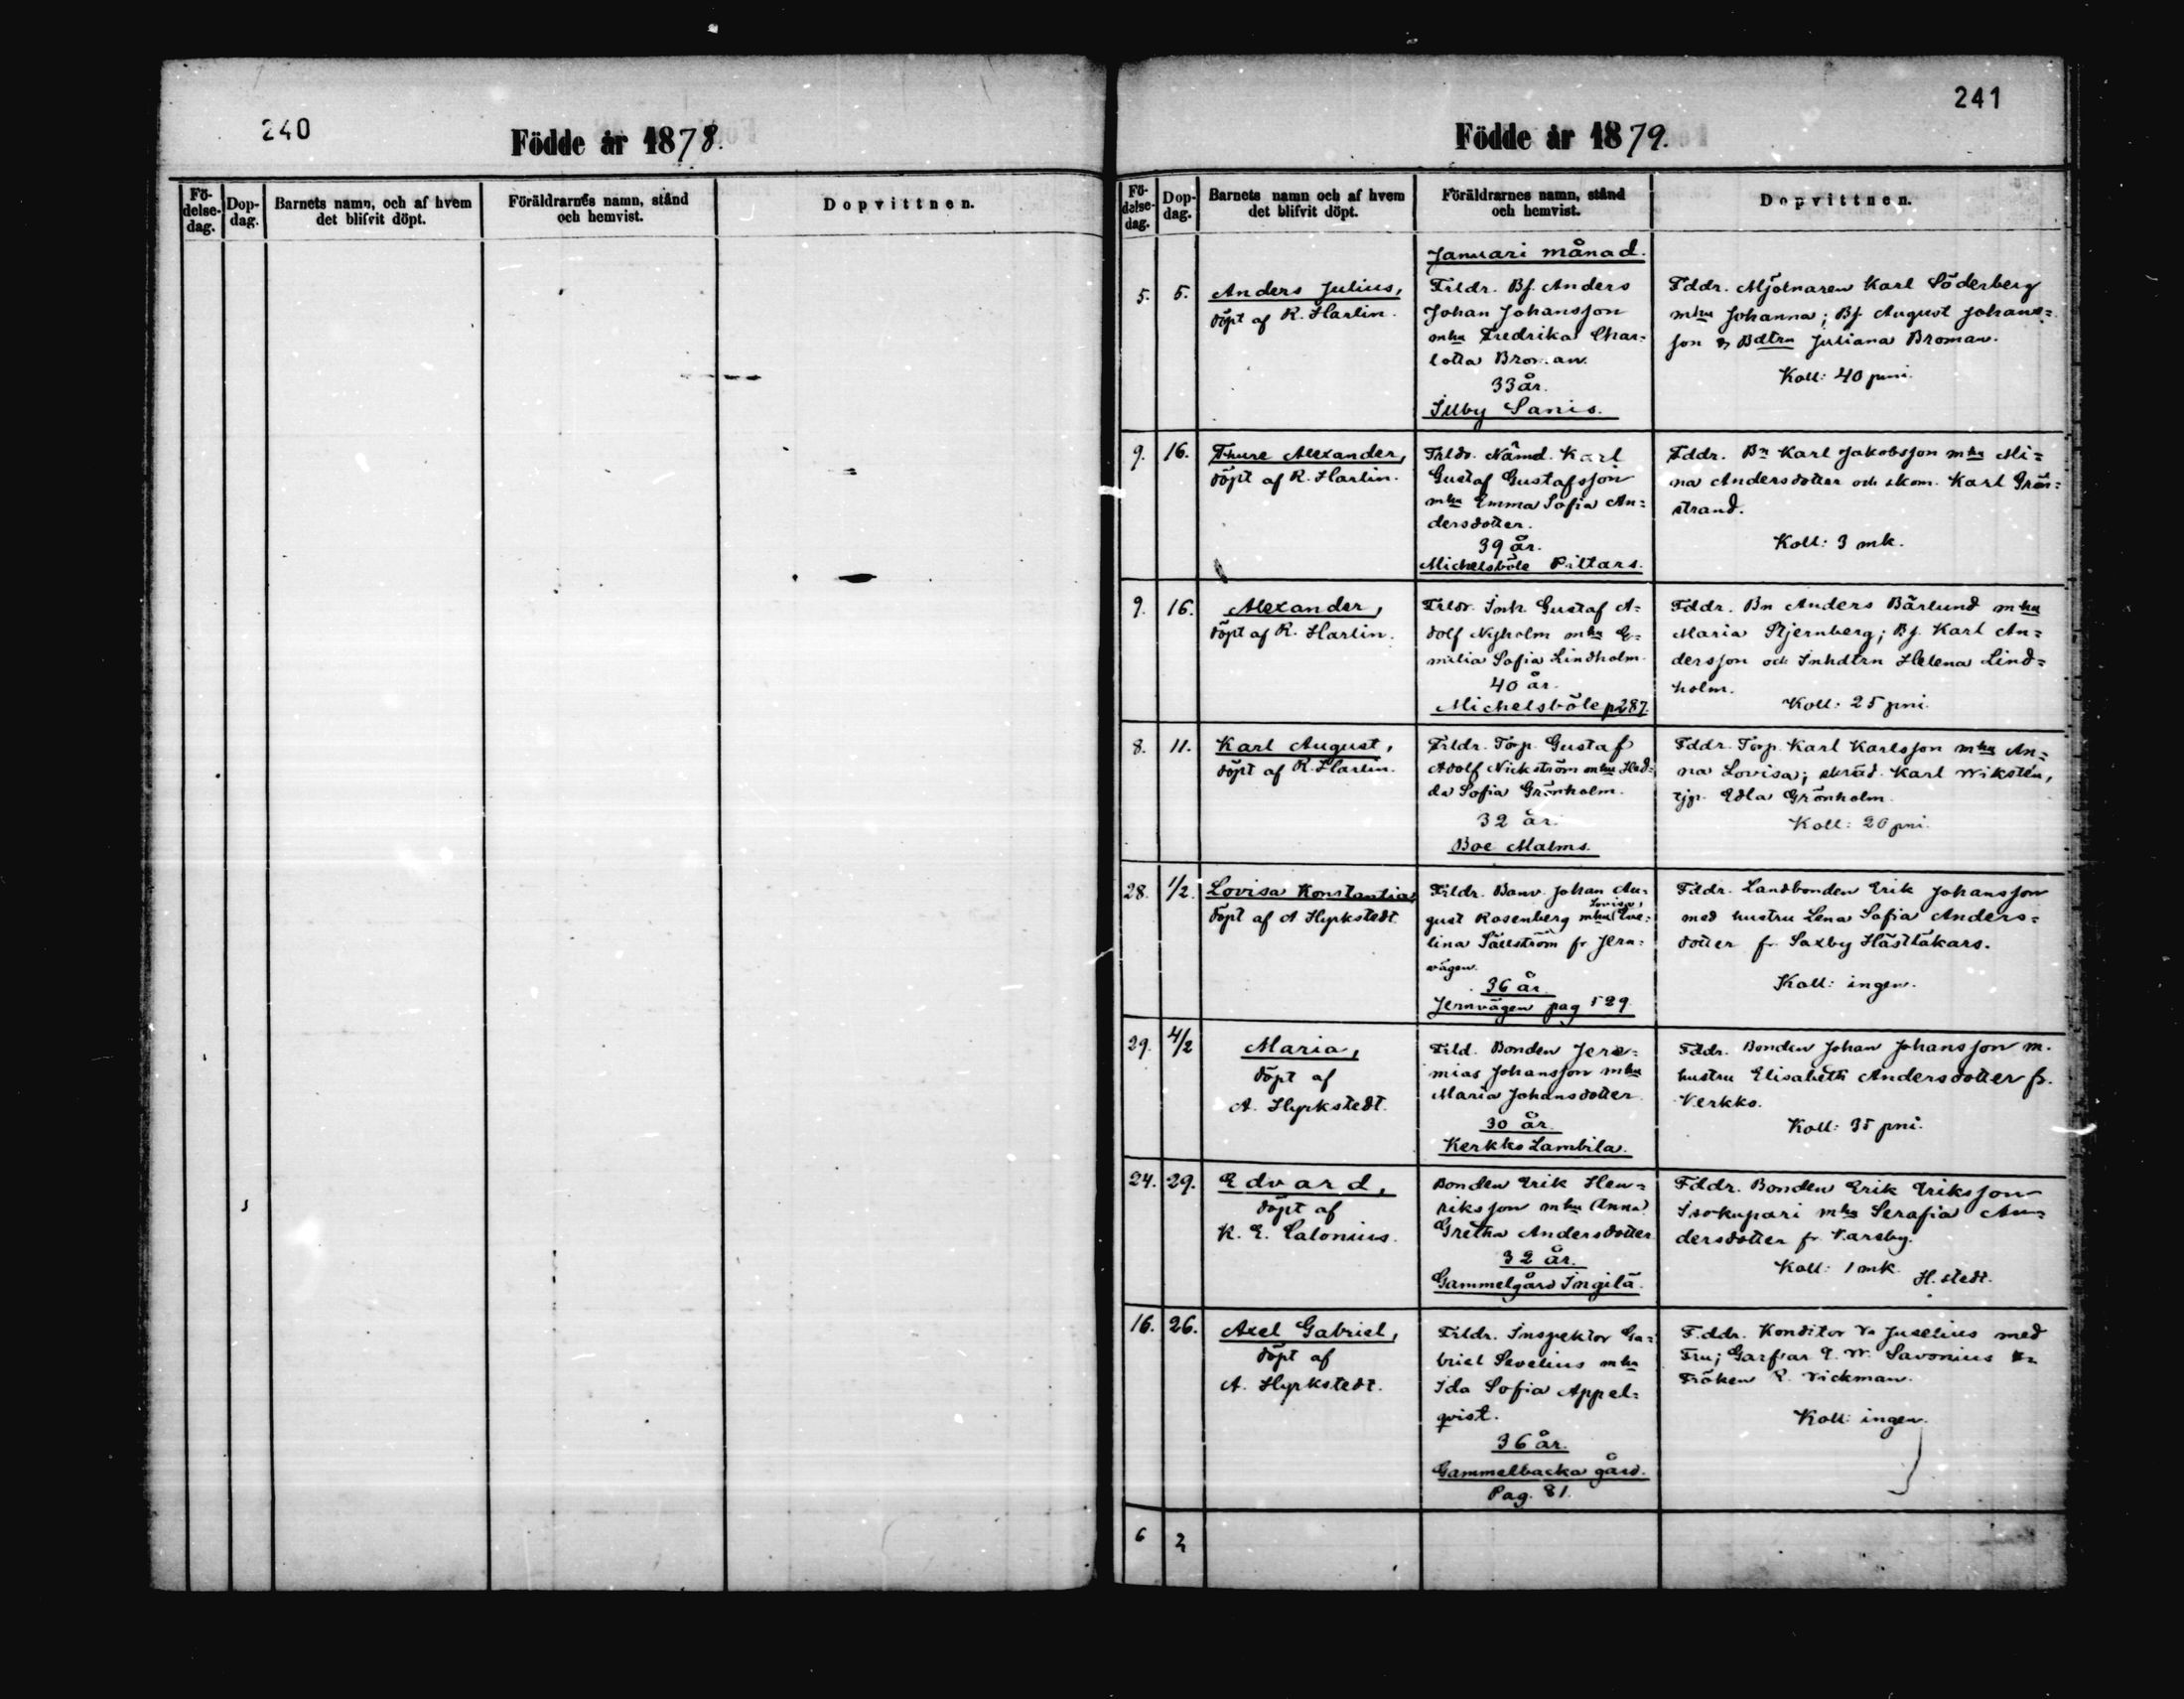 240
Födde år 1878.
Fö-
delse-
dag.
Dop-
dag.
Barnets namn, och af hvem
det blifvit döpt.
Föräldrarnes namn, stånd
och hemvist.
Dopvittnen.
241
Födde år 1879.
Fö-
delse-
dag.
Dop-
dag.
Barnets namn och af hvem
det blifvit döpt.
Föräldrarnes namn, stånd
och hemvist.
Dopvittnen.
Januari månad.
5.
5.
Anders Julius,
döpt af R. Harlin.
Frldr. Bj. Anders
Johan Johansson
mhu Fredrika Char=
lotta Broman.
33 år.
Illby Sanis.
Fddr. Mjölnaren Karl Söderberg
mhu Johanna; Bj. August Johans=
son & Bdtrn Juliana Broman.
Koll: 40 pni.
9.
16.
Thure Alexander,
döpt af R. Harlin.
Frldr. Nämd. Karl
Gustaf Gustafsson
mhu Emma Sofia An=
dersdotter.
39 år.
Michelsböle Pittars.
Fddr. Bn Karl Jakobsson mhu Mi=
na Andersdotter och skom. Karl Grön=
strand.
Koll: 3 mk.
9.
16.
Alexander,
döpt af R. Harlin.
Frldr. Inh. Gustaf A=
dolf Nyholm mhu E=
milia Sofia Lindholm.
40 år.
Michelsböle p287.
Fddr. Bn Anders Bärlund mhu
Maria Stjernberg; Bj. Karl An=
dersson och Inhdtrn Helena Lind=
holm.
Koll: 25 pni.
8.
11.
Karl August,
döpt af R. Harlin.
Frldr. Torp. Gustaf
Adolf Nickström mhu Hed=
da Sofia Grönholm.
32 år.
Boe Malms.
Fddr. Torp. Karl Karlsson mhu An=
na Lovisa; skräd. Karl Wikstén,
Edla Grönholm.
Koll: 20 pni.
28.
1/2.
Lovisa Konstantia,
döpt af A Hyrkstedt.
Frldr. Banv. Johan Au=
gust Rosenberg mhu Lovisa, Eve=
lina Sällström fr Jern=
vägen.
36 år.
Jernvägen pag 529.
Fddr. Landbonden Erik Johansson
med hustru Lena Sofia Anders=
dotter fr. Saxby Hästläkars.
Koll: ingen.
29.
4/2
Maria,
döpt af
A. Hyrkstedt.
Frld. Bonden Jere=
mias Johansson mhu
Maria Johansdotter
30 år.
Kerkko Lambila.
Fddr. Bonden Johan Johansson m.
hustru Elisabeth Andersdotter fr.
Kerkko.
Koll: 35 pni.
24.
29.
Edvard,
döpt af
K. E. Calonius.
Bonden Erik Hen=
riksson mhu (Anna)
Gretha Andersdotter
32 år.
Gammelgård Ingilä.
Fddr. Bonden Erik Eriksson
Isokupari mhu Serafia An=
dersdotter fr.
Koll: 1 mk.
H.stedt.
16.
26.
Axel Gabriel,
döpt af
A. Hyrkstedt.
Frldr. Inspektor Ga=
briel Sevelius mhu
Ida Sofia Appel=
qvist.
36 år.
Gammelbacka gård.
Pag. 81.
Fddr. Konditor Juselius med
Fru; Savonius
Fröken Vickman.
Koll: ingen.
6
2